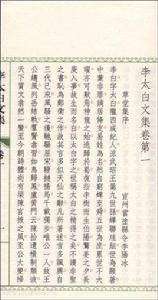 李太白文集卷第一
草堂集序
宣州當塗縣令李陽冰
李白字太白隴西成紀人涼武昭王暠九世孫蟬聯珪組世為顯著
中葉非罪謫居條支易姓與名然自窮蟬至舜五世為庶累世不大
曜亦可歎焉神龍之始逃歸于蜀復指李樹而生伯陽驚姜之夕長
庚入夢故生而名白以太白字之世稱太白之精得之矣不讀非聖
之書恥為鄭衛之作故其言多似天仙之辭凡所著述言多諷興自
三代已來風騷之後馳驅屈宋鞭撻揚馬千載獨步唯公一人故王
公趨風列岳結軌群賢翕習如鳥歸鳳盧黃門云陳拾遺橫制頹波
天下質文翕然一變至今朝詩體尚有梁陳宮掖之風至公大變掃
李太白文集